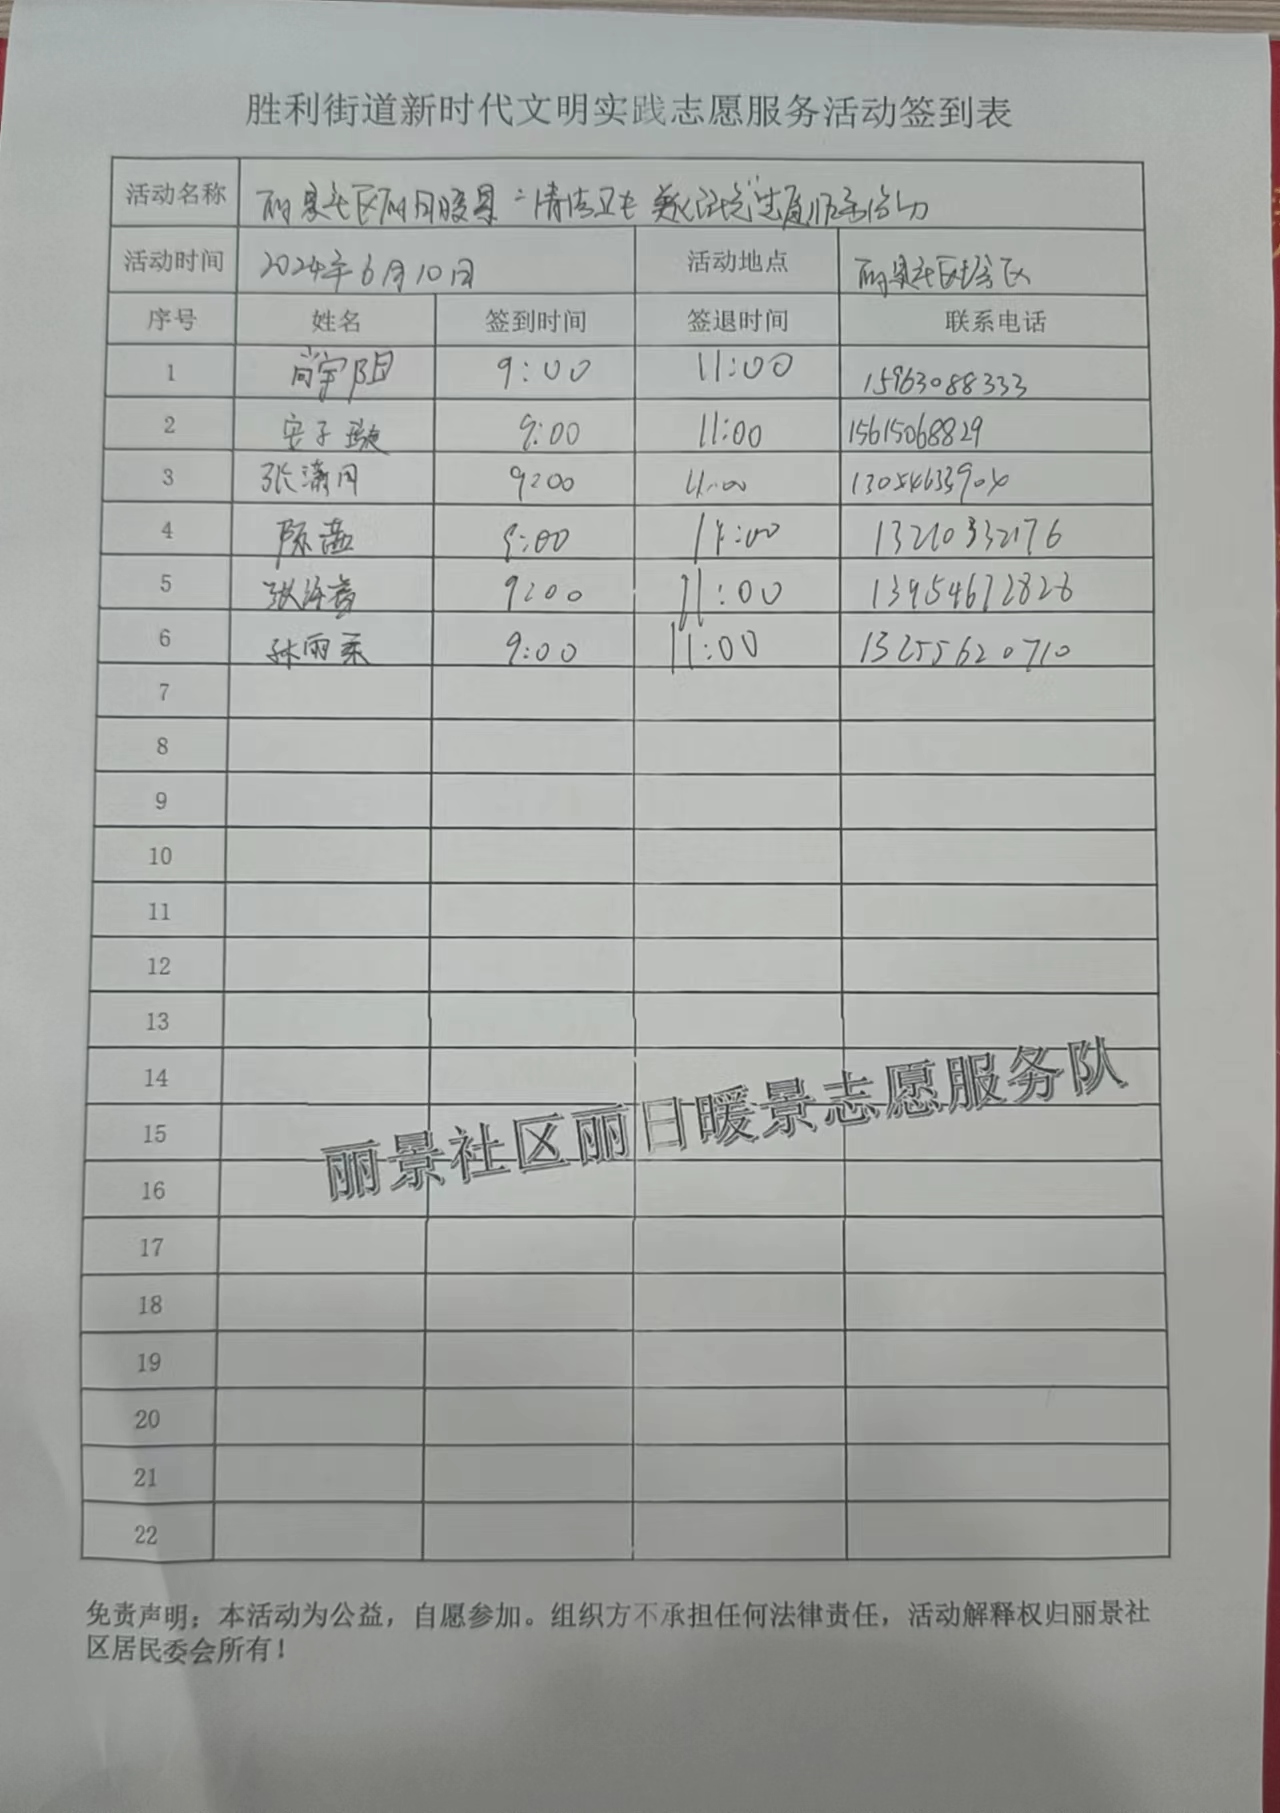 胜利街道新时代文明实践志愿服务活动签到表
活动名称 丽景社区丽日暖景 清洁卫生
活动时间 2024年6月10日 活动地点 丽景社区
序号 姓名 签到时间 签退时间 联系电话
1 尚宇阳 9:00 11:00 15963088333
2 安子璇 9:00 11:00 15615068829
3 张潇月 9:00 11:00 13054633904
4 陈 9:00 11:00 13210332176
5 张 9:00 11:00 13954672828
6 孙丽 9:00 11:00 13255620710
7
8
9
10
11
12
13
14
15
16
丽景社区丽日暖景志愿服务队
17
18
19
20
21
22
免责声明：本活动为公益，自愿参加。组织方不承担任何法律责任，活动解释权归丽景社
区居民委会所有！